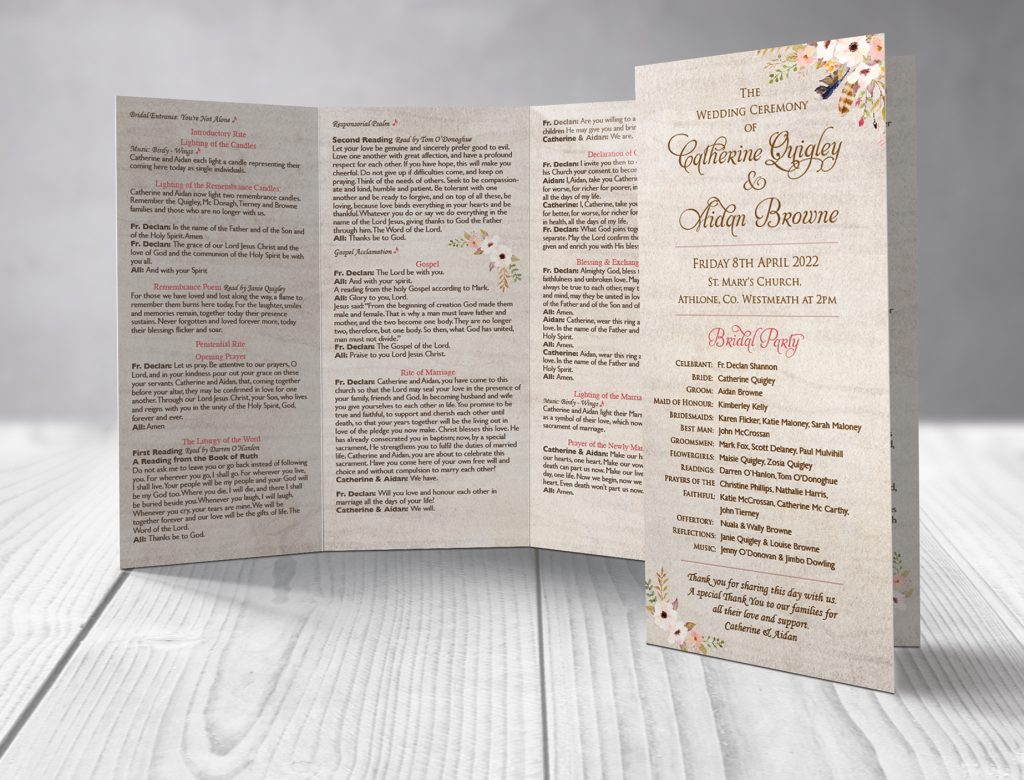 Bridal Entrance: You're Not Alone
Introductory Rite
Lighting of the Candles
Music: Birdy - Wings
Catherine and Aidan each light a candle representing their
coming here today as single individuals.
Lighting of the Remembrance Candles:
Catherine and Aidan now light two remembrance candles.
Remember the Quigley, Mc Donagh, Tierney and Browne
families and those who are no longer with us.
Fr. Declan: In the name of the Father and of the Son and
of the Holy Spirit. Amen
Fr. Declan: The grace of our Lord Jesus Christ and the
love of God and the communion of the Holy Spirit be with
you all.
All: And with your Spirit
Remembrance Poem Read by Janie Quigley
For those we have loved and lost along the way, a flame to
remember them burns here today. For the laughter, smiles
and memories remain, together today their presence
sustains. Never forgotten and loved forever more, today
their blessings flicker and soar.
Penitential Rite
Opening Prayer
Fr. Declan: Let us pray. Be attentive to our prayers, O
Lord, and in your kindness pour out your grace on these
your servants Catherine and Aidan, that, coming together
before your altar, they may be confirmed in love for one
another. Through our Lord Jesus Christ, your Son, who lives
and reigns with you in the unity of the Holy Spirit, God,
forever and ever.
All: Amen
The Liturgy of the Word
First Reading Read by Darren O'Hanlon
A Reading from the Book of Ruth
Do not ask me to leave you or go back instead of following
you. For wherever you go, I shall go. For wherever you live,
I shall live. Your people will be my people and your God will
be my God too. Where you die, I will die, and there I shall
be buried beside you. Whenever you laugh, I will laugh.
Whenever you cry, your tears are mine. We will be
together forever and our love will be the gifts of life. The
Word of the Lord.
All: Thanks be to God.
Responsorial Psalm
Second Reading Read by Tom O'Donoghue
Let your love be genuine and sincerely prefer good to evil.
Love one another with great affection, and have a profound
respect for each other. If you have hope, this will make you
cheerful. Do not give up if difficulties come, and keep on
praying. Think of the needs of others. Seek to be compassion-
ate and kind, humble and patient. Be tolerant with one
another and be ready to forgive, and on top of all these, be
loving, because love binds everything in your hearts and be
thankful. Whatever you do or say we do everything in the
name of the Lord Jesus, giving thanks to God the Father
through him. The Word of the Lord.
All: Thanks be to God.
Gospel Acclamation
Gospel
Fr. Declan: The Lord be with you.
All: And with your spirit.
A reading from the holy Gospel according to Mark.
All: Glory to you, Lord.
Jesus said: "From the beginning of creation God made them
male and female. That is why a man must leave father and
mother, and the two become one body. They are no longer
two, therefore, but one body. So then, what God has united,
man must not divide."
Fr. Declan: The Gospel of the Lord.
All: Praise to you Lord Jesus Christ.
Rite of Marriage
Fr. Declan: Catherine and Aidan, you have come to this
church so that the Lord may seal your love in the presence of
your family, friends and God. In becoming husband and wife
you give yourselves to each other in life. You promise to be
true and faithful, to support and cherish each other until
death, so that your years together will be the living out in
love of the pledge you now make. Christ blesses this love. He
has already consecrated you in baptism; now, by a special
sacrament, He strengthens you to fulfil the duties of married
life. Catherine and Aidan, you are about to celebrate this
sacrament. Have you come here of your own free will and
choice and without compulsion to marry each other?
Catherine & Aidan: We have.
Fr. Declan: Will you love and honour each other in
marriage all the days of your life?
Catherine & Aidan: We will.
Fr. Declan: Are you willing to a
children He may give you and brin
Catherine & Aidan: We are.
Declaration of C
Fr. Declan: I invite you then to
his Church your consent to becom
Aidan: I, Aidan, take you Catherine
for worse, for richer for poorer, in
all the days of my life.
Catherine: I, Catherine, take you
for better, for worse, for richer for
in health, all the days of my life.
Fr. Declan: What God joins toge
separate. May the Lord confirm th
given and enrich you with His bless
Blessing & Exchang
Fr. Declan: Almighty God, bless t
faithfulness and unbroken love. May
always be true to each other, may t
and mind, may they be united in lov
of the Father and of the Son and of
All: Amen.
Aidan: Catherine, wear this ring a
love. In the name of the Father and
Holy Spirit.
All: Amen.
Catherine: Aidan, wear this ring a
love. In the name of the Father and
Holy Spirit.
All: Amen.
Lighting of the Marria
Music: Birdy - Wings
Catherine and Aidan light their Marr
as a symbol of their love, which now
sacrament of marriage.
Prayer of the Newly Mar
Catherine & Aidan: Make our h
our hearts, one heart. Make our vow
death can part us now. Make our live
day, one life. Now we begin, now we
heart. Even death won't part us now.
All: Amen.
The
Wedding Ceremony
of
Catherine Quigley
&
Aidan Browne
Friday 8th April 2022
St. Mary's Church,
Athlone, Co. Westmeath at 2pm
Bridal Party
Celebrant: Fr. Declan Shannon
Bride: Catherine Quigley
Groom: Aidan Browne
Maid of Honour: Kimberley Kelly
Bridesmaids: Karen Flicker, Katie Maloney, Sarah Maloney
Best Man: John McCrossan
Groomsmen: Mark Fox, Scott Delaney, Paul Mulvihill
Flowergirls: Maisie Quigley, Zosia Quigley
Readings: Darren O'Hanlon, Tom O'Donoghue
Prayers of the Christine Phillips, Nathalie Harris,
Faithful: Katie McCrossan, Catherine Mc Carthy,
John Tierney
Offertory: Nuala & Wally Browne
Reflections: Janie Quigley & Louise Browne
Music: Jenny O'Donovan & Jimbo Dowling
Thank you for sharing this day with us.
A special Thank You to our families for
all their love and support.
Catherine & Aidan